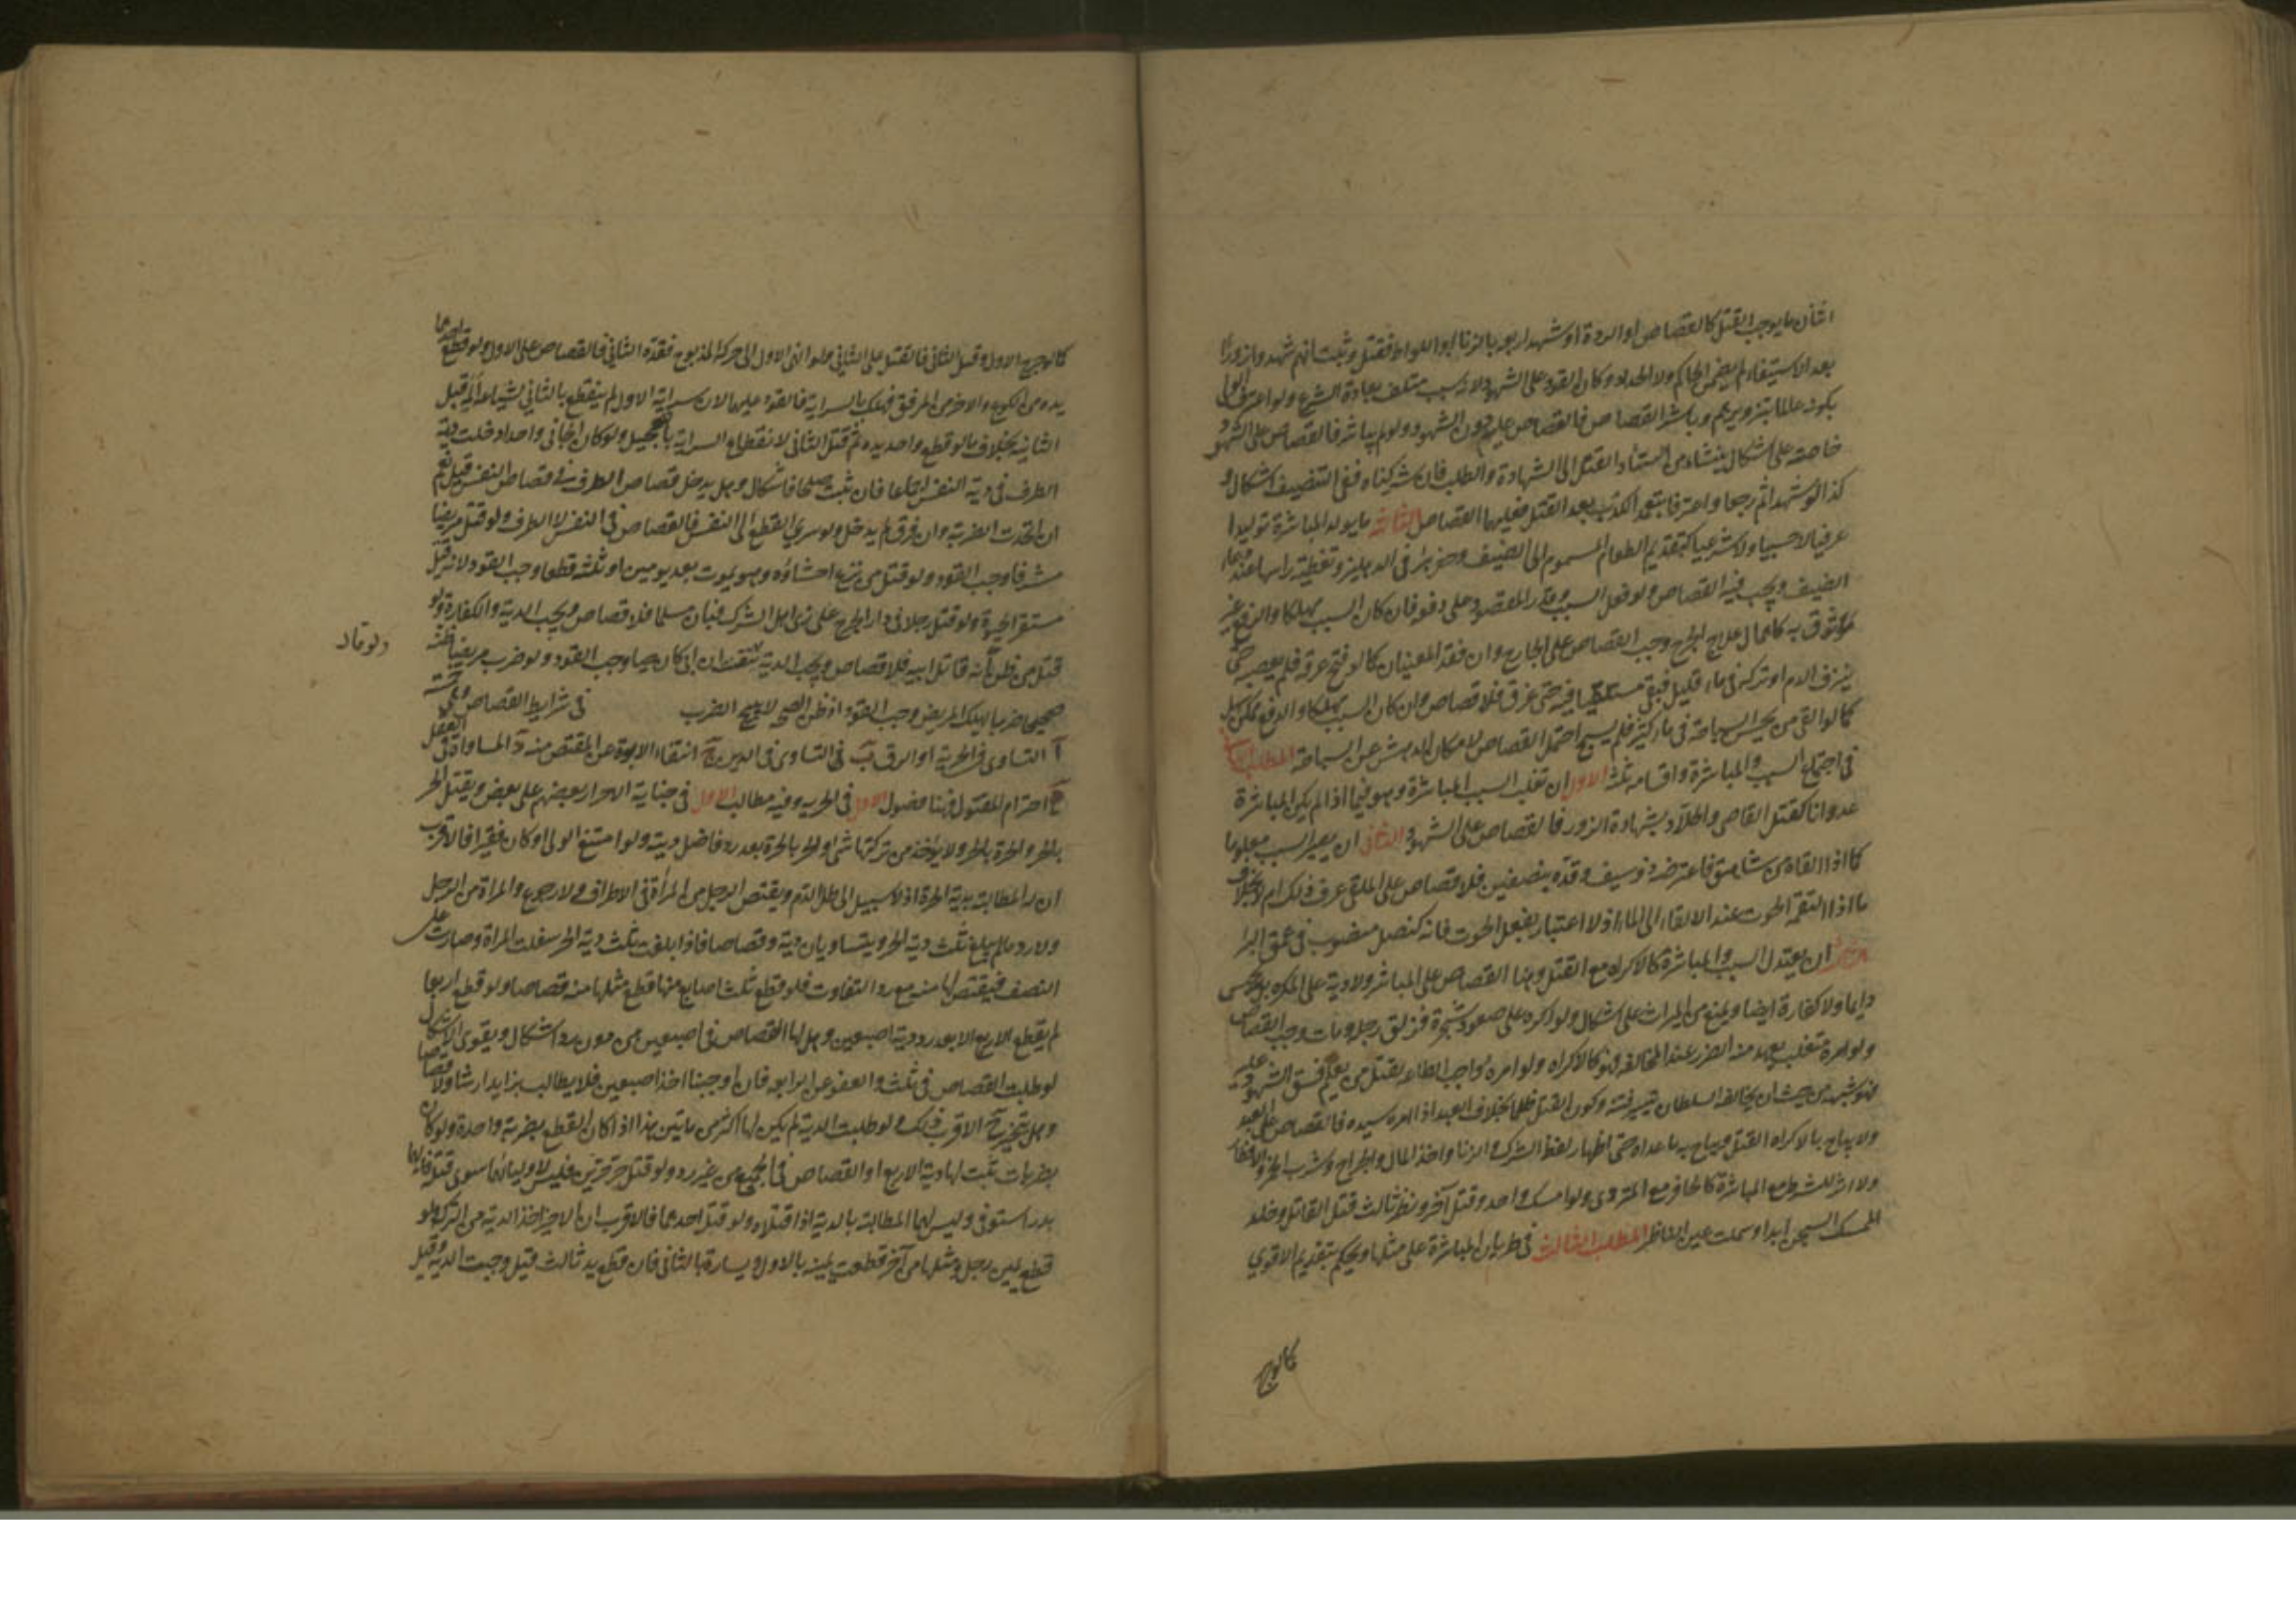 اثنان ما يوجب القتل كالقصاص او الردة او شهد اربعة بالزنا او اللواط فقتل وثبت انهم شهدوا زورًا
بعد الاستيفاء لم يضمن الحاكم ولا الحداد وكان القود على الشهود لانه سبب متلف بعادة الشرع ولو اعترف الولي
بكونه عالما بتزويرهم وباشر القصاص فالقصاص عليه دون الشهود ولو لم يباشر فالقصاص على الشهود
خاصة على اشكال ينشاء من استناد القتل الى الشهادة والطلب فان شركناه ففي التنصيف اشكال و
كذا لو شهدا ثم رجعا واعترفا بتعمد الكذب بعد القتل فعليهما القصاص الثالثة ما يولد المباشرة توليدا
عرفيا لا حسيا ولا شرعيا كتقديم الطعام المسموم الى الضيف وحفر بئر في الدهليز وتغطية راسها عند دعاء
الضيف ويجب فيه القصاص ولو فعل السبب وقدر المقصود على دفعه فان كان السبب مهلكا والدفع غير
موثوق به كاهمال علاج الجرح وجب القصاص على الجارح وان فقد المعنيان كما لو فتح عرقه فلم يعصبه حتى
ينزف الدم او تركه في ماء قليل فبقي مستلقيا فيه حتى غرق فلا قصاص وان كان السبب مهلكا والدفع ممكن سهل
كما لو القي من يحسن السباحة في ماء كثير فلم يسبح احتمل القصاص لامكان الدهش عن السباحة المطلب الثاني
في اجتماع السبب والمباشرة واقسامه ثلثة الاول ان تغلب السبب المباشرة وهو فيما اذا لم يكن المباشرة
عدوانا كقتل القاضي والجلاد بشهادة الزور فالقصاص على الشهود الثاني ان يصير السبب مغلوبا
كما اذا القاه من شاهق فاعترضه ذو سيف وقده بنصفين فلا قصاص على الملقي عرف ذلك ام لا بخلاف
ما اذا التقمه الحوت عند الالقاء الى الماء اذ لا اعتبار بفعل الحوت فانه كنصل منصوب في عمق البئر
الثالث ان يعتدل السبب والمباشرة كالاكراه مع القتل وهنا القصاص على المباشر ولا دية على المكره بل يحبس
دايما ولا كفارة ايضا ويمنع من الميراث على اشكال ولو اكره على صعود شجرة فزلق رجله ومات وجب القصاص
ولو امره متغلب يعهد منه الضرر عند المخالفة فهو كالاكراه ولو امره واجب الطاعة بقتل من يعلم فسق الشهود عليه
فهو شبهة من حيث ان مخالفة السلطان تثير فتنة وكون القتل ظلما بخلاف العبد اذا امره سيده فالقصاص على العبد
ولا يباح بالاكراه القتل ويباح به ما عداه حتى اظهار لفظ الشرك والزنا واخذ المال والجراح وشرب الخمر والافطار
ولا اثر للشرط مع المباشرة كالحافر مع المتردي ولو امسك واحد وقتل آخر ونظر ثالث قتل القاتل وخلد
الممسك السجن ابدا وسملت عين الناظر المطلب الثالث في طريان المباشرة على مثلها ويحكم بتقديم الاقوي
كما لو جرح
كما لو جرح الاول وقتل الثاني فالقتل على الثاني ولو انهى الاول الى حركة المذبوح فقده الثاني فالقصاص على الاول ولو قطع احدهما
يده من الكوع والاخر من المرفق فهلك بالسراية فالقود عليهما لان سراية الاول لم ينقطع بالثاني لشياع المه قبل
الثانية بخلاف ما لو قطع واحد يده ثم قتله الثاني لانقطاع السراية بالتعجيل ولو كان الجاني واحدا دخلت دية
الطرف في دية النفس اجماعا فان ثبت صلحا فاشكال وهل يدخل قصاص الطرف في قصاص النفس قيل نعم
ان اتحدت الضربة وان فرق لم يدخل ولو سري القطع الى النفس فالقصاص في النفس لا الطرف ولو قتل مريضا
مشرفا وجب القود ولو قتل من نزع احشاؤه وهو يموت بعد يومين او ثلثة قطعا وجب القود لانه قتل
مستقر الحيوة ولو قتل رجلا في دار الحرب على زي اهل الشرك فبان مسلما فلا قصاص ويجب الدية والكفارة ولو
قتل من ظن انه قاتل ابيه فلا قصاص ويجب الدية ان ابي كان حيا وجب القود ولو ضرب مريضا ظنه
ولو قال
صحيحا ضربا يهلك المريض وجب القود اذ ظن الصحة لا يبيح الضرب في شرايط القصاص وهي خمسة
آ التساوي في الحرية او الرق ب في التساوي في الدين ج انتفاء الابوة عن المقتص منه د المساواة في العقل
ه احترام المقتول فهنا فصول الاول في الحرية وفيه مطالب الاول في جناية الاحرار بعضهم على بعض ويقتل الحر
بالحر والحرة بالحرة ولا يؤخذ من تركتها شئ والحر بالحرة بعد رد فاضل ديته ولو امتنع الولي او كان فقيرا فالاقرب
ان له المطالبة بدية الحرة اذ لا سبيل الى طل الدم ويقتص الرجل من المرأة في الاطراف ولا رجوع والمراة من الرجل
ولا رد ما لم يبلغ ثلث دية الحر ويتساويان دية وقصاصا فاذا بلغت ثلث دية الحر سفلت المراة وصارت على
النصف فيقتص لها منه مع رد التفاوت فلو قطع ثلث اصابع منها قطع مثلها منه قصاصا ولو قطع اربعا
لم يقطع الاربع الا بعد رد دية اصبعين وهل لها القصاص في اصبعين من دون رد اشكال ويقوى الاشكال
لو طلبت القصاص في ثلث والعفو عن الرابعة فان اوجبنا اخذ اصبعين فلا يطالب بزايد ارشا ولا قصاصا
وهل يتخير ح الاقرب ذلك ولو طلبت الدية لم يكن لها اكثر من مايتين هذا اذا كان القطع بضربة واحدة ولو كان
بضربات ثبت لها دية الاربع او القصاص في الجميع من غير رد ولو قتل حر حرتين فليس لاوليائهما سوى قتله فايهما
بدر استوفى وليس لهما المطالبة بالدية اذا قتلاه ولو قتل احدهما فالاقرب ان للاخر اخذ الدية من التركة ولو
قطع يمين رجل ومثلها من آخر قطعت يمينه بالاول ويساره بالثاني فان قطع يد ثالث قيل وجبت الدية وقيل